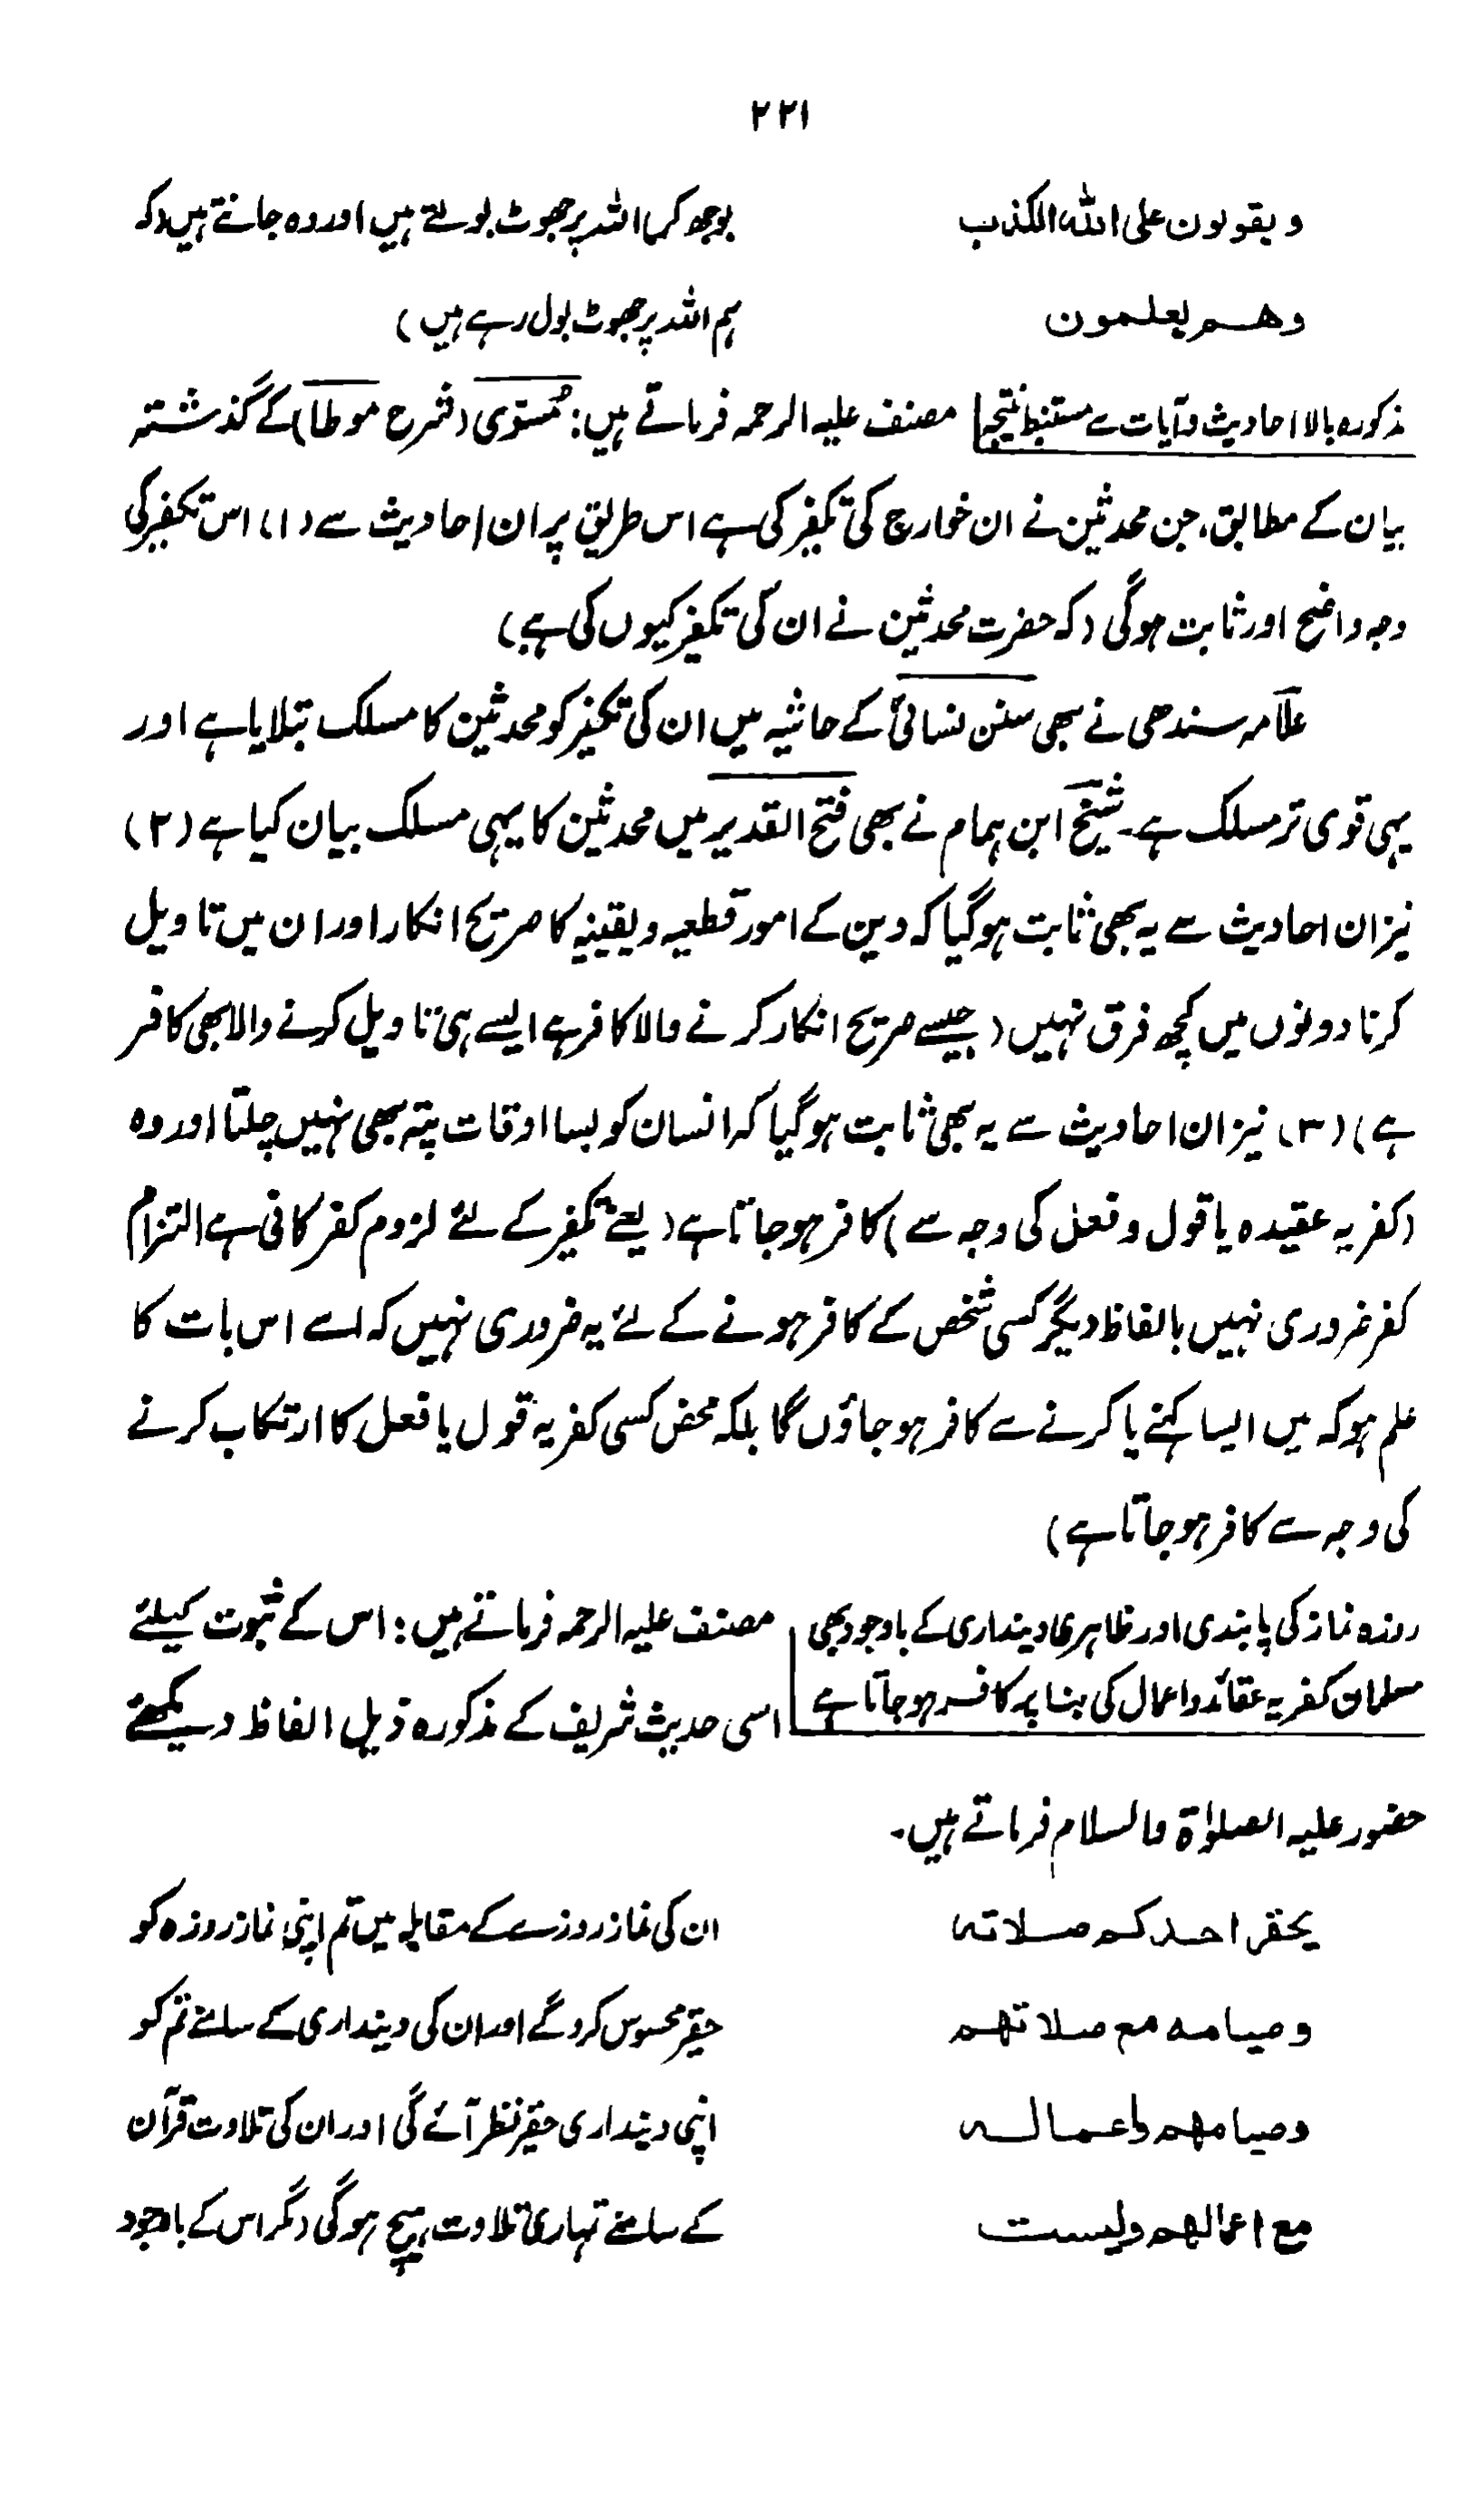 ۲۲۱
ویقولون علی اللہ الکذب
بوجھ کر اللہ پر جھوٹ بولتے ہیں اور وہ جانتے ہیں (کہ
وھم یعلمون
ہم اللہ پر جھوٹ بول رہے ہیں)
مذکورہ بالا احادیث و آیات سے مستنبط نتیجہ مصنف علیہ الرحمہ فرماتے ہیں: مُسَوّی (شرح موطا) کے گذشتہ
بیان کے مطابق، جن محدثین نے ان خوارج کی تکفیر کی ہے اس طریق پر ان احادیث سے (۱) اس تکفیر کی
وجہ واضح اور ثابت ہوگی (کہ حضرت محدثین نے ان کی تکفیر کیوں کی ہے)
علامہ سندھی نے بھی سنن نسائی کے حاشیہ میں ان کی تکفیر کو محدثین کا مسلک بتلایا ہے اور
یہی قوی تر مسلک ہے۔ شیخ ابن ہمام نے بھی فتح القدیر میں محدثین کا یہی مسلک بیان کیا ہے (۲)
نیز ان احادیث سے یہ بھی ثابت ہوگیا کہ دین کے امور قطعیہ و یقینیہ کا صریح انکار اور ان میں تاویل
کرنا دونوں میں کچھ فرق نہیں (جیسے صریح انکار کرنے والا کافر ہے ایسے ہی تاویل کرنے والا بھی کافر
ہے) (۳) نیز ان احادیث سے یہ بھی ثابت ہوگیا کہ انسان کو بسا اوقات پتہ بھی نہیں چلتا اور وہ
(کفریہ عقیدہ یا قول و فعل کی وجہ سے) کافر ہو جاتا ہے (یعنی تکفیر کے لئے لزوم کفر کافی ہے التزام
کفر ضروری نہیں بالفاظ دیگر کسی شخص کے کافر ہونے کے لئے یہ ضروری نہیں کہ اسے اس بات کا
علم ہو کہ میں ایسا کہنے یا کرنے سے کافر ہو جاؤں گا بلکہ محض کسی کفریہ قول یا فعل کا ارتکاب کرنے
کی وجہ سے کافر ہو جاتا ہے)
روزہ نماز کی پابندی اور ظاہری دینداری کے باوجود بھی
مسلمان کفریہ عقائد و اعمال کی بنا پر کافر ہو جاتا ہے
مصنف علیہ الرحمہ فرماتے ہیں: اس کے ثبوت کیلئے
اسی حدیث شریف کے مذکورہ ذیل الفاظ دیکھئے
حضور علیہ الصلوٰۃ والسلام فرماتے ہیں۔
یحقر احدکم صلاتہ
ان کی نماز روزے کے مقابلہ میں تم اپنی نماز روزہ کو
وصیامہ مع صلاتھم
حقیر محسوس کرو گے اور ان کی دینداری کے سامنے تم کو
وصیامھم واعمالہ
اپنی دینداری حقیر نظر آئے گی اور ان کی تلاوت قرآن
مع اعمالھم ولیست
کے سامنے تمہاری تلاوت ہیچ ہوگی (مگر اس کے باوجود